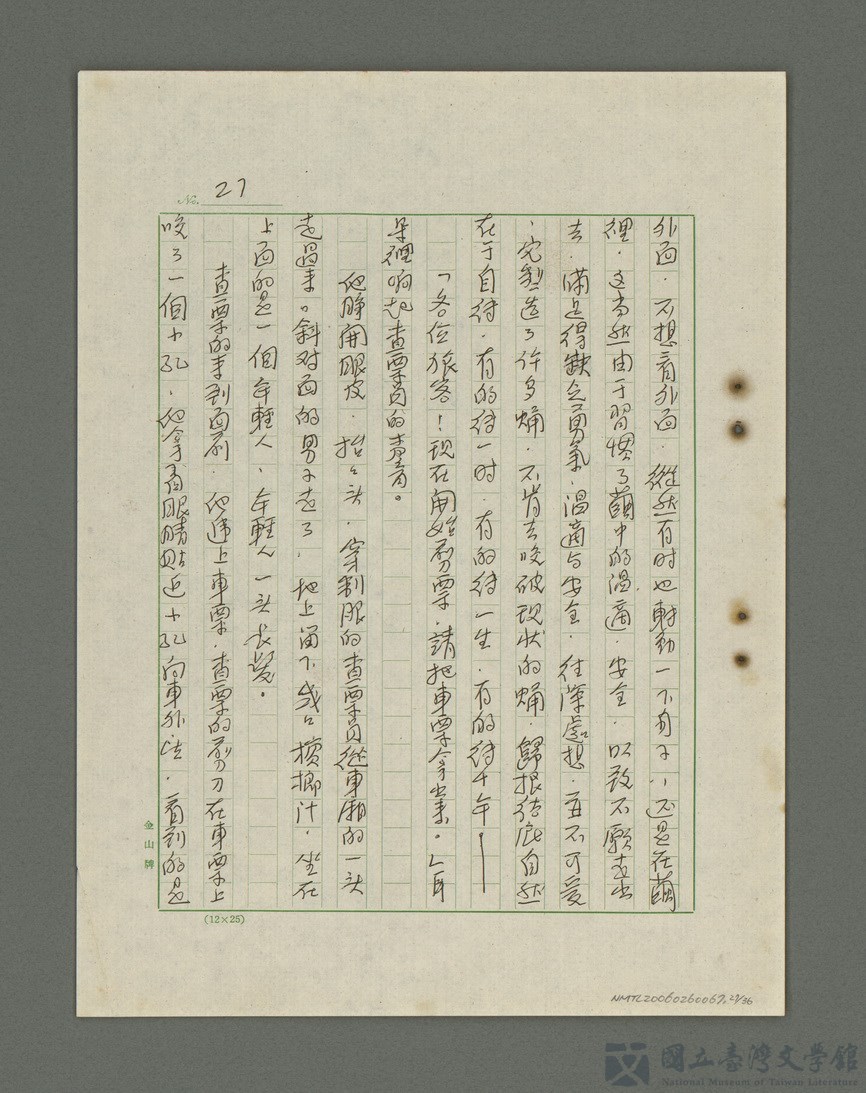 No. 27
外面．不想看外面．縱然有时也動一下身子．还是在繭
裡．这当然由于習慣了繭中的温適．安全．以致不願走出
去．滿足得缺乏勇氣．温適与安全．往深處想．並不可爱
．它製造了许多蛹．不肯去咬破現状的蛹．歸根结底自然
在于自待．有的待一时．有的待一生．有的待千年——
「各位旅客！現在開始剪票．請把車票拿出来。」耳
朵裡响起查票員的聲音。
他睁開眼皮．抬抬头．穿制服的查票員從車厢的一头
走過来。斜对面的男子走了．地上留下幾口檳榔汁．坐在
上面的是一個年輕人．年輕人一头长髮。
查票的来到面前．他递上車票．查票的剪刀在車票上
咬了一個小孔．他拿着眼睛貼近小孔向車外注．看到的是
金山牌
(12×25)
NMTL20060260067.27/36
國立臺灣文學館
National Museum of Taiwan Literature